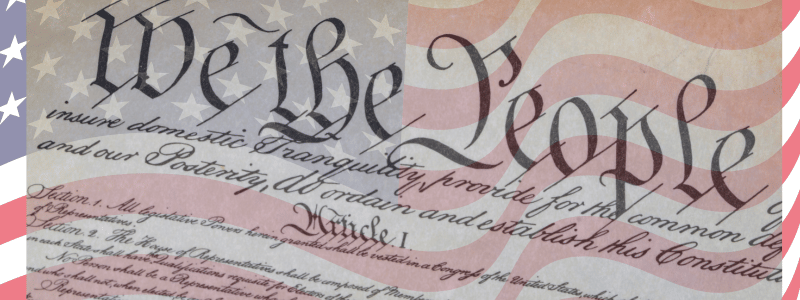 We the People
insure domestic Tranquility, provide for the common def
and our Posterity, do ordain and establish this Constitut
Article I.
Section 1. All legislative Powers herein granted shall be vested in a Congress of the United States, which shall
of Representatives.
Section 2. The House of Representatives shall be composed of Mem
in each State shall have Qualifications requisite for Electors of the
No Person shall be a Representative who
and who shall not, when elected, be
Representatives